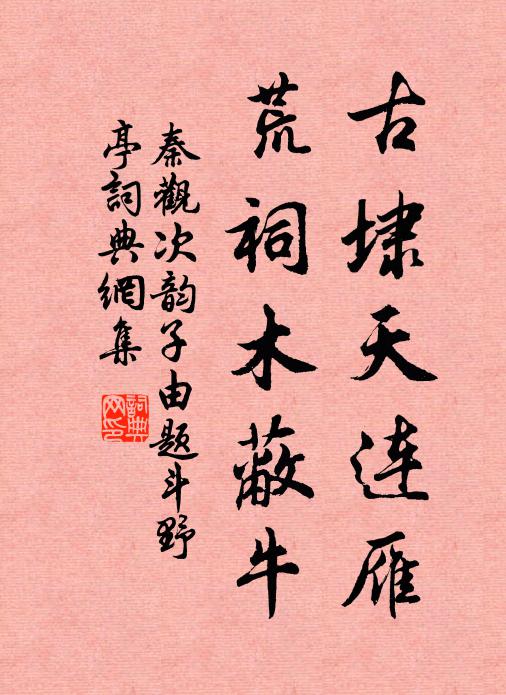 古埭天連雁
荒祠木蔽牛
秦觀次韵子由題斗野
亭詞典網集
詞典网印